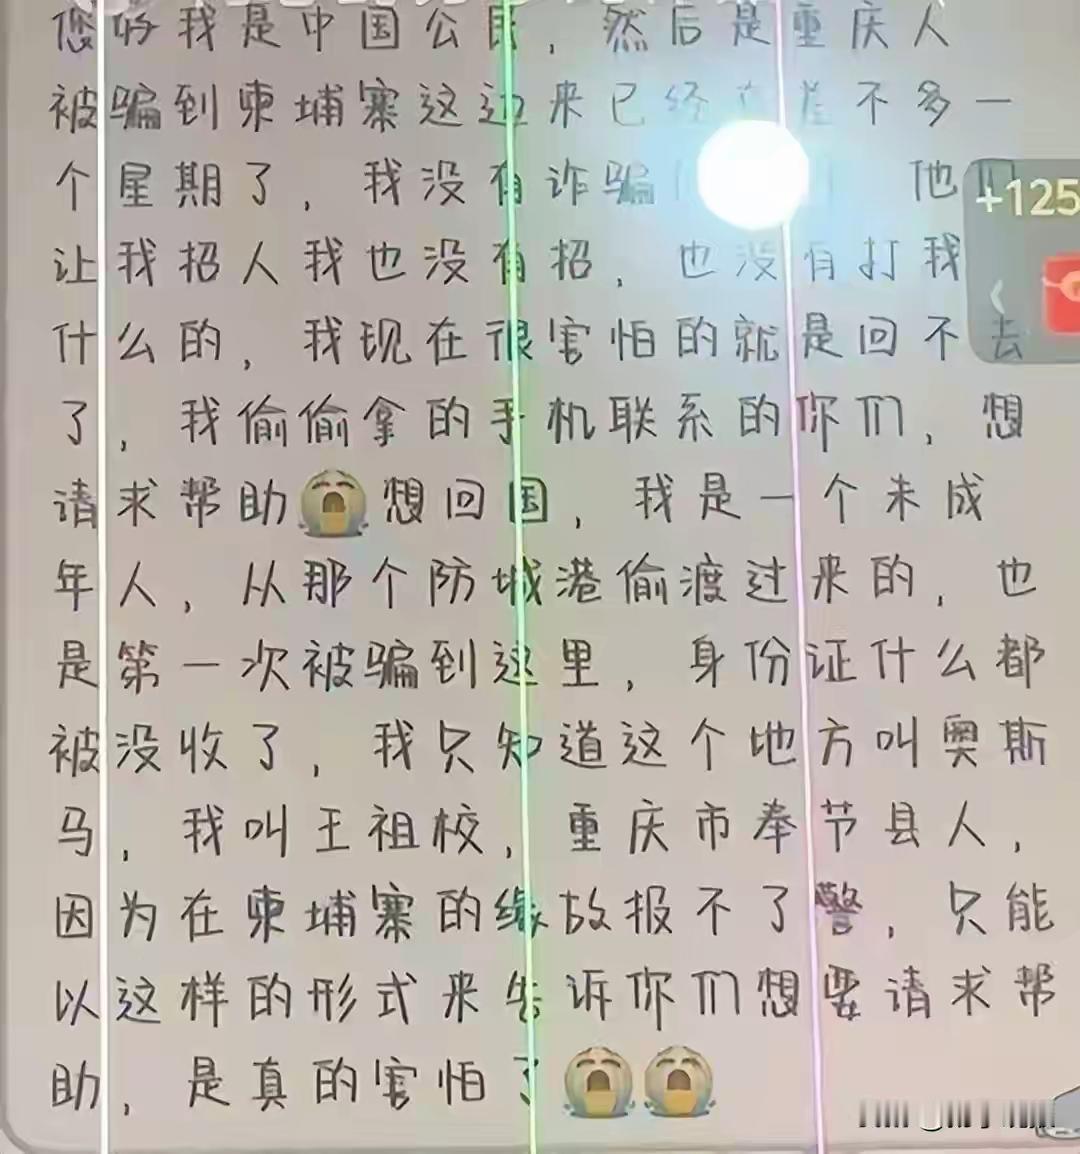 您好我是中国公民，然后是重庆人
被骗到柬埔寨这边来已经有差不多一
个星期了，我没有诈骗 他们
+125
让我招人我也没有招，也没有打我
什么的，我现在很害怕的就是回不去
了，我偷偷拿的手机联系的你们，想
请求帮助😭想回国，我是一个未成
年人，从那个防城港偷渡过来的，也
是第一次被骗到这里，身份证什么都
被没收了，我只知道这个地方叫奥斯
马，我叫王祖校，重庆市奉节县人，
因为在柬埔寨的缘故报不了警，只能
以这样的形式来告诉你们想要请求帮
助，是真的害怕了😭😭